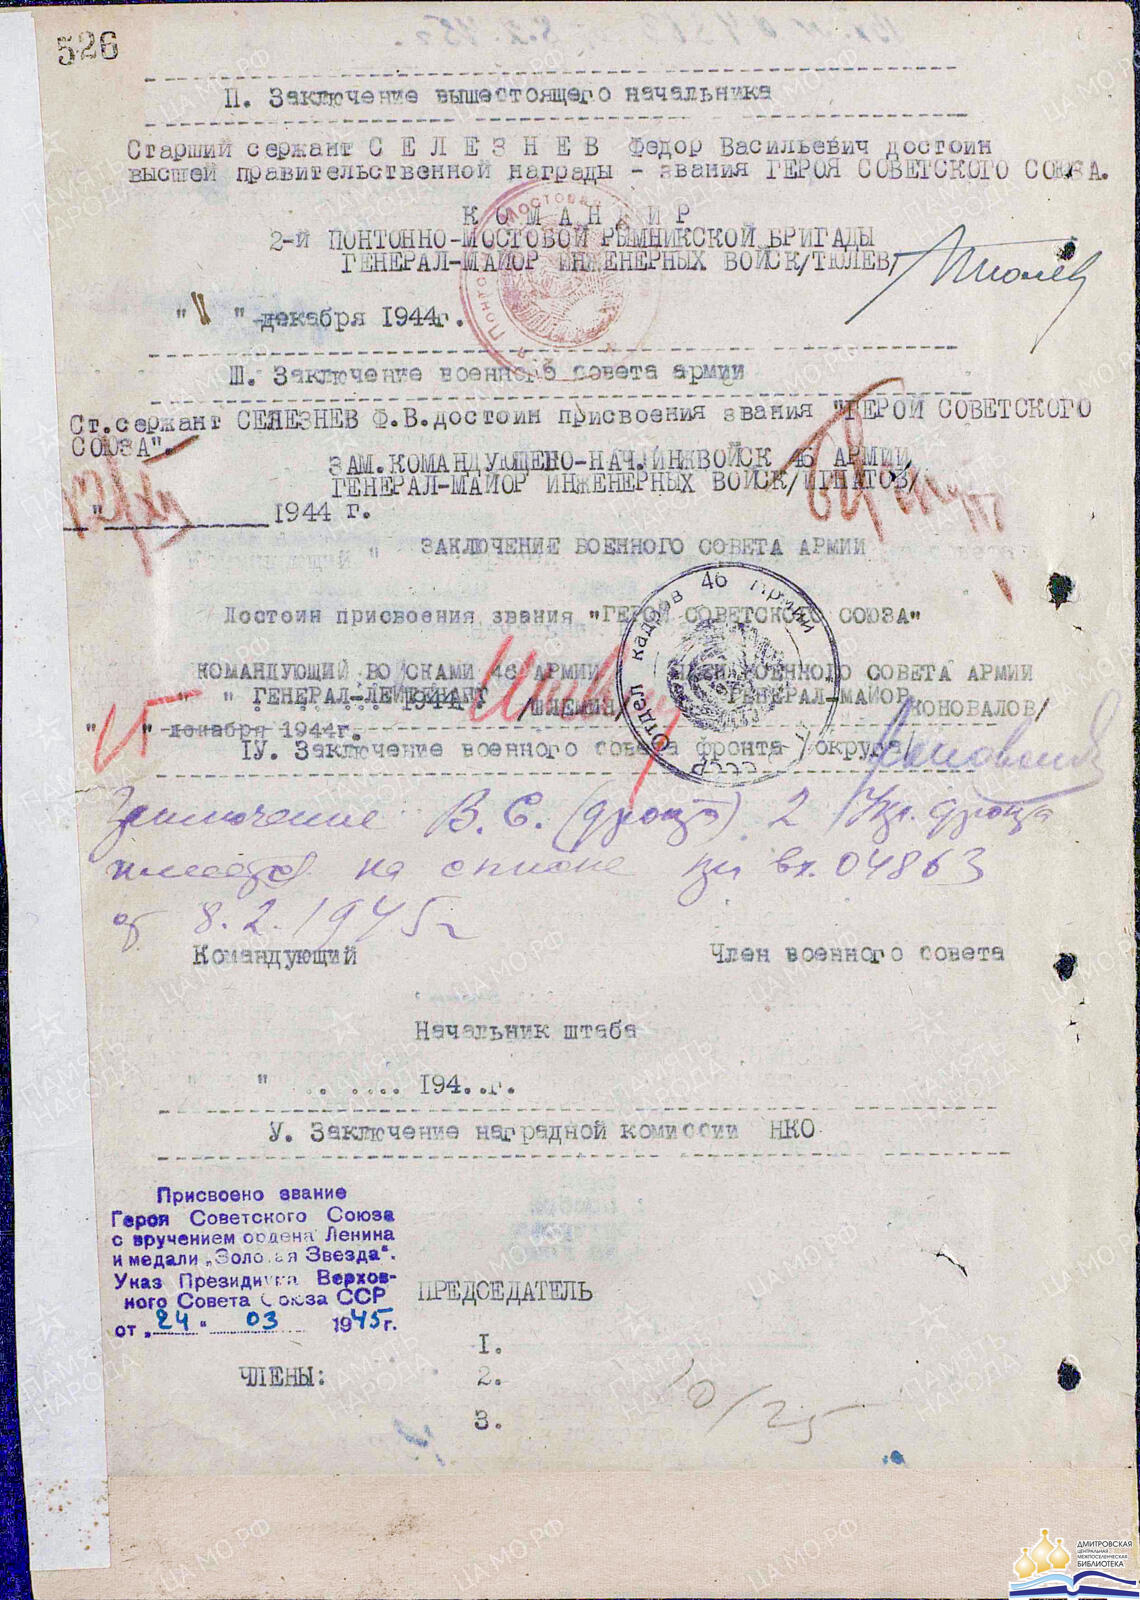 526
II. Заключение вышестоящего начальника
Старший сержант С Е Л Е З Н Е В Федор Васильевич достоин
высшей правительственной награды - звания ГЕРОЯ СОВЕТСКОГО СОЮЗА.
К О М А Н Д И Р
2-й ПОНТОННО-МОСТОВОЙ РЫМНИКСКОЙ БРИГАДЫ
ГЕНЕРАЛ-МАЙОР ИНЖЕНЕРНЫХ ВОЙСК/ТЮЛЕВ/
" " декабря 1944г.
Ш. Заключение военного совета армии
Ст.сержант СЕЛЕЗНЕВ Ф.В.достоин присвоения звания "ГЕРОЙ СОВЕТСКОГО
СОЮЗА".
ЗАМ.КОМАНДУЮЩЕГО-НАЧ.ИНЖВОЙСК 46 АРМИИ
ГЕНЕРАЛ-МАЙОР ИНЖЕНЕРНЫХ ВОЙСК/ИГНАТОВ/
" 1944 г.
ЗАКЛЮЧЕНИЕ ВОЕННОГО СОВЕТА АРМИИ
Достоин присвоения звания "ГЕРОЙ СОВЕТСКОГО СОЮЗА"
КОМАНДУЮЩИЙ ВОЙСКАМИ 46 АРМИИ ЧЛЕН ВОЕННОГО СОВЕТА АРМИИ
ГЕНЕРАЛ-ЛЕЙТЕНАНТ ГЕНЕРАЛ-МАЙОР
/ШЛЕМИН/ /КОНОВАЛОВ/
" 15 " декабря 1944г.
Отдел кадров 46 Армии
СССР
IУ. Заключение военного совета фронта /округа/
Заключение В.С. (фронта) 2 Укр. фронта
имеется на списке при вх. 04863
от 8.2.1945г
Командующий Член военного совета
Начальник штаба
" " .. .... 194..г.
У. Заключение наградной комиссии НКО
Присвоено звание
Героя Советского Союза
с вручением ордена Ленина
и медали „Золотая Звезда".
Указ Президиума Верхов-
ного Совета Союза ССР
от „24" 03 1945г.
ПРЕДСЕДАТЕЛЬ
ЧЛЕНЫ:
1.
2.
3.
10/25
ПАМЯТЬ НАРОДА
ЦАМО.РФ
ДМИТРОВСКАЯ
ЦЕНТРАЛЬНАЯ
МЕЖПОСЕЛЕНЧЕСКАЯ
БИБЛИОТЕКА